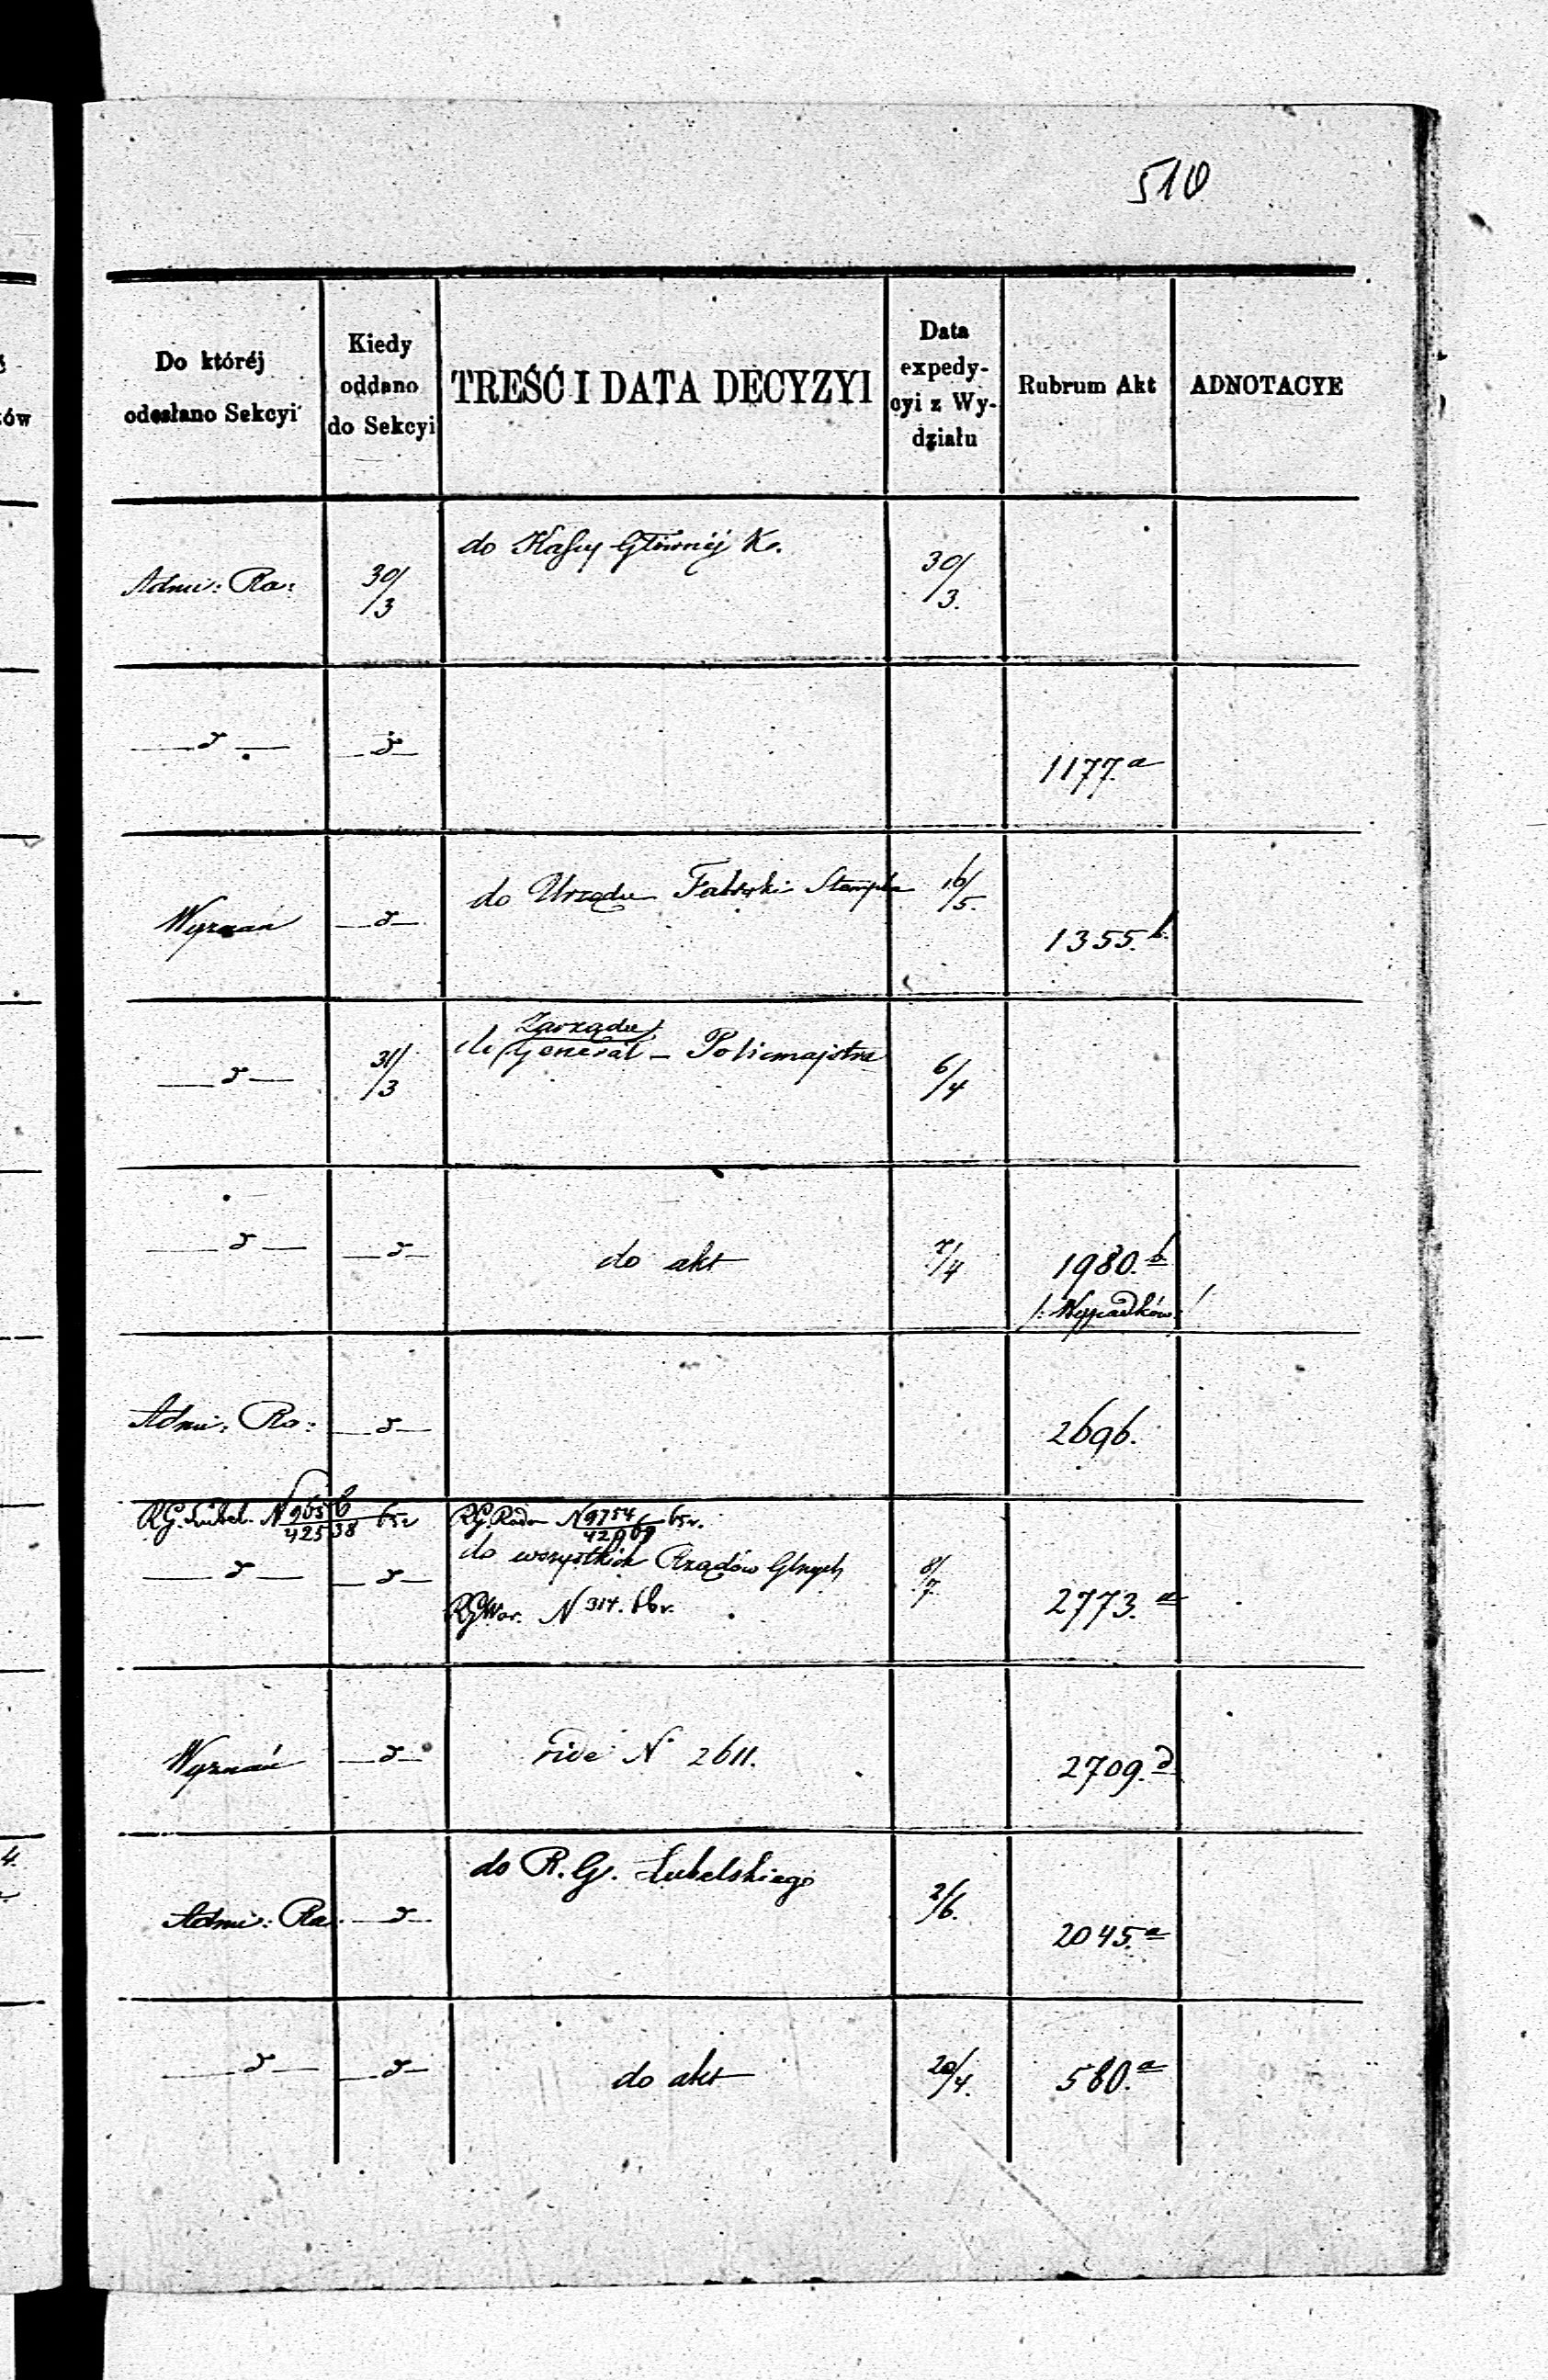 510
Do któréj odesłano Sekcyi
Kiedy oddano do Sekcyi
TREŚĆ I DATA DECYZYI
Data expedy-cyi z Wy-działu
Rubrum Akt
ADNOTACYE
ów
Admi: Ra:
30/3
do Kassy Głównéj K.
30/3.
1177.a
Wyznań
do Urzędu Fabryki Stempla
16/5.
1355.b.
31/3
Zarządu
do General - Policmajstra
6/4
do akt
7/4
1980.b.
/: Wypadków :/
Admi: Ra:
2696.
R.G. Lubel. N 9656/42538 65r
R.G. Rado N 9754/42969 65r.
do wszystkich Rządów Glnych
8/7.
2773.a
RGWar. N 314. 66r.
Wyznań
vide N 2611.
2709.d
4.
do R. G. Lubelskiego
Admi: Ra:
2/6.
2045.a
do akt
20/4.
580.a